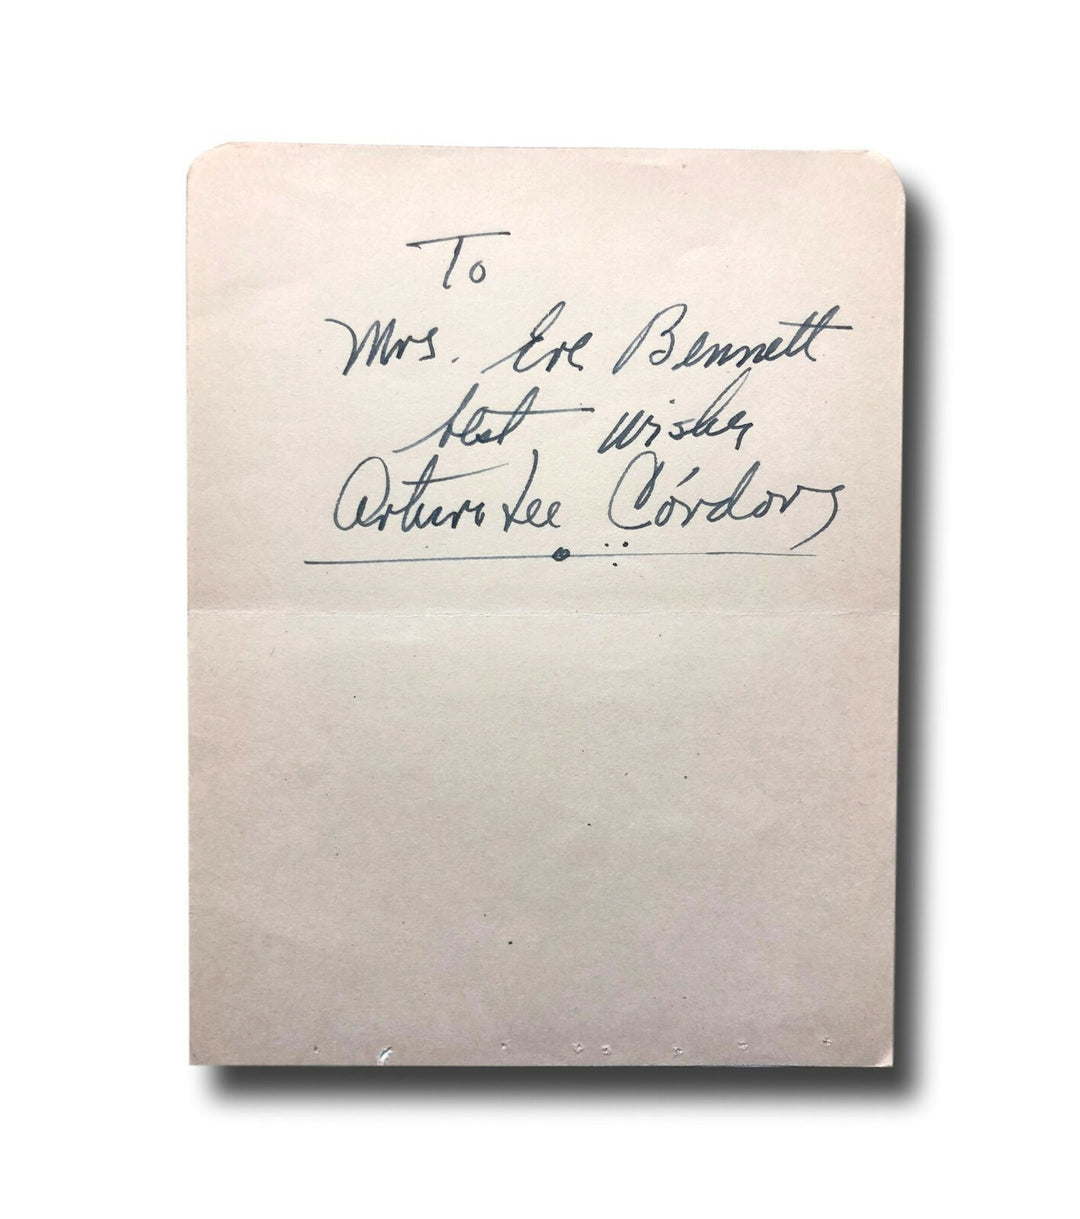 To
Mrs. Eve Bennett
best wishes
Arturo Lee Córdova